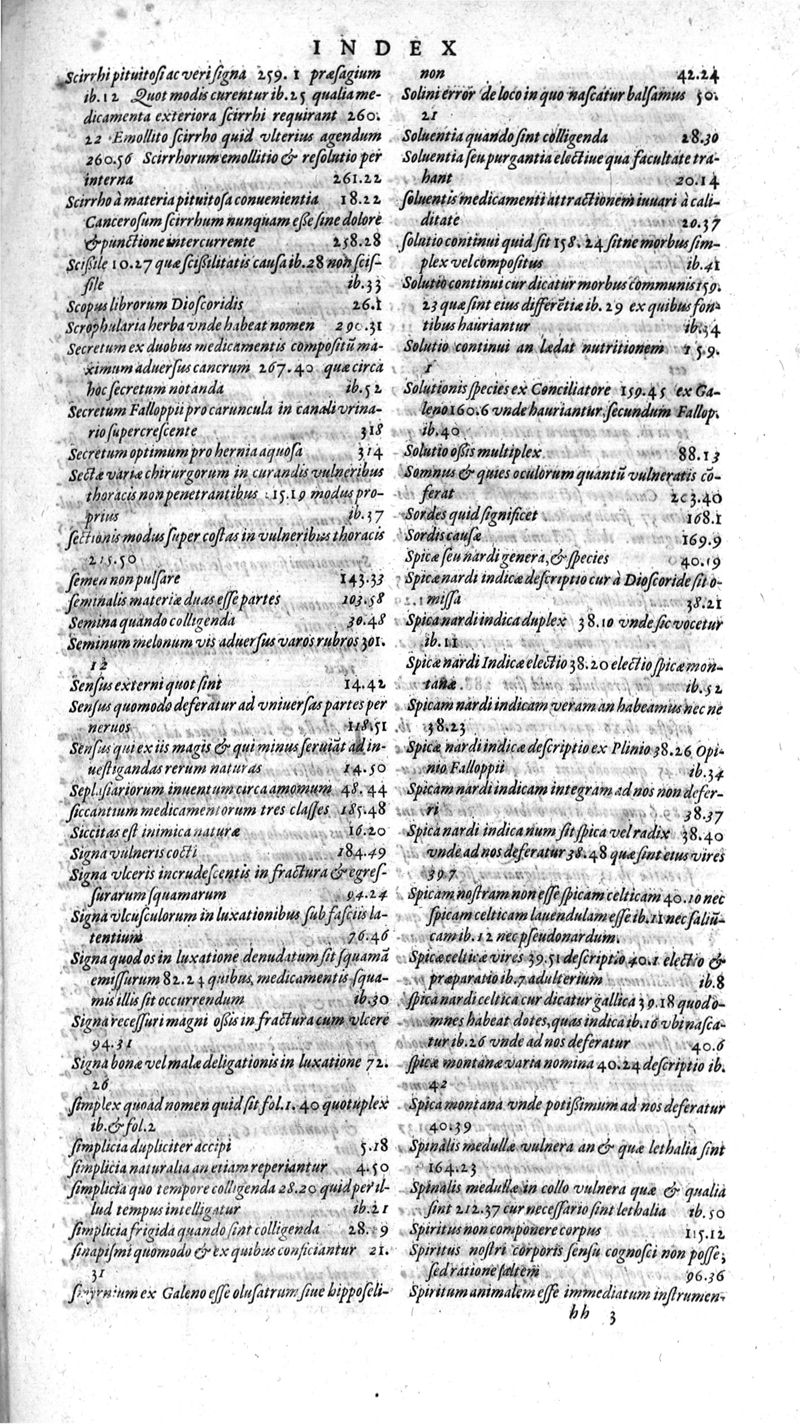 INDEX
Scirrhi pituitosi ac veri signa 259.1 præsagium
ib.12 Quot modis curentur ib.25 qualia me-
dicamenta exteriora scirrhi requirant 260.
22 Emollito scirrho quid vlterius agendum
260.56 Scirrhorum emollitio & resolutio per
interna 261.22
Scirrho à materia pituitosa conuenientia 18.22
Cancerosum scirrhum nunquam esse sine dolore
& punctione intercurrente 258.28
Scissile 10.27 quæ scissilitatis causa ib.28 non scis-
sile ib.33
Scopus librorum Dioscoridis 26.1
Scrophularia herba vnde habeat nomen 290.31
Secretum ex duobus medicamentis compositū ma-
ximum aduersus cancrum 267.40 quæ circa
hoc secretum notanda ib.52
Secretum Falloppii pro caruncula in canali vrina-
rio supercrescente 318
Secretum optimum pro hernia aquosa 314
Sectæ variæ chirurgorum in curandis vulneribus
thoracis non penetrantibus 215.19 modus pro-
prius ib.37
sectionis modus super costas in vulneribus thoracis
215.50
semen non pulsare 143.33
seminalis materiæ duas esse partes 103.58
Semina quando colligenda 30.48
Seminum melonum vis aduersus varos rubros 301.
12
Sensus externi quot sint 14.42
Sensus quomodo deferatur ad vniuersas partes per
neruos 118.51
Sensus qui ex iis magis & qui minus seruiāt ad in-
uestigandas rerum naturas 14.50
Seplasiariorum inuentum circa amomum 48.44
siccantium medicamentorum tres classes 185.48
Siccitas est inimica naturæ 16.20
Signa vulneris cocti 184.49
Signa vlceris incrudescentis in fractura & egres-
surarum squamarum 94.24
Signa vlcusculorum in luxationibus sub fasciis la-
tentium 76.46
Signa quod os in luxatione denudatum sit squamā
emissurum 82.24 quibus, medicamentis squa-
mis illis sit occurrendum ib.30
Signa recessuri magni ossis in fractura cum vlcere
94.31
Signa bonæ vel malæ deligationis in luxatione 72.
26
simplex quoad nomen quid sit fol.1. 40 quotuplex
ib.& fol.2
simplicia dupliciter accipi 5.18
simplicia naturalia an etiam reperiantur 4.50
simplicia quo tempore colligenda 28.20 quid per il-
lud tempus intelligatur ib.21
simplicia frigida quando sint colligenda 28. 9
sinapismi quomodo & ex quibus conficiantur 21.
31
smyrnium ex Galeno esse olusatrum siue hipposeli-
non 42.24
Solini error de loco in quo nascatur balsamus 50.
21
Soluentia quando sint colligenda 28.30
Soluentia seu purgantia electiue qua facultate tra-
hant 20.14
soluentis medicamenti attractionem iuuari à cali-
ditate 20.37
solutio continui quid sit 158.24 sitne morbus sim-
plex vel compositus ib.41
Solutio continui cur dicatur morbus communis 159.
23 quæ sint eius differētiæ ib.29 ex quibus fon-
tibus hauriantur ib.34
Solutio continui an lædat nutritionem 159.
1
Solutionis species ex Conciliatore 159.45 ex Ga-
leno 160.6 vnde hauriantur, secundum Fallop.
ib.40
Solutio ossis multiplex 88.13
Somnus & quies oculorum quantū vulneratis cō-
ferat 203.40
Sordes quid significet 168.1
Sordis causæ 169.9
Spicæ seu nardi genera, & species 40.19
Spicæ nardi indicæ descriptio cur à Dioscoride sit o-
missa 38.21
Spica nardi indica duplex 38.10 vnde sic vocetur
ib.11
Spicæ nardi Indicæ electio 38.20 electio spicæ mon-
tanæ. ib.52
Spicam nardi indicam veram an habeamus nec ne
38.23
Spicæ nardi indicæ descriptio ex Plinio 38.26 Opi-
nio Falloppii ib.34
Spicam nardi indicam integram ad nos non defer-
ri 38.37
Spica nardi indica num sit spica vel radix 38.40
vnde ad nos deferatur 38.48 quæ sint eius vires
39.7
Spicam nostram non esse spicam celticam 40.10 nec
spicam celticam lauendulam esse ib.11 nec saliū-
cam ib.12 nec pseudonardum.
Spicæ celticæ vires 39.51 descriptio 40.1 electio &
præparatio ib.7 adulterium ib.8
spica nardi celtica cur dicatur gallica 39.18 quod o-
mnes habeat dotes, quas indica ib.16 vbi nasca-
tur ib.26 vnde ad nos deferatur 40.6
spicæ montanæ varia nomina 40.24 descriptio ib.
42
Spica montana vnde potissimum ad nos deferatur
40.39
Spinalis medullæ vulnera an & quæ lethalia sint
164.23
Spinalis medullæ in collo vulnera quæ & qualia
sint 212.37 cur necessario sint lethalia ib.50
Spiritus non componere corpus 115.12
Spiritus nostri corporis sensu cognosci non posse,
sed ratione saltem 96.36
Spiritum animalem esse immediatum instrumen-
hh 3